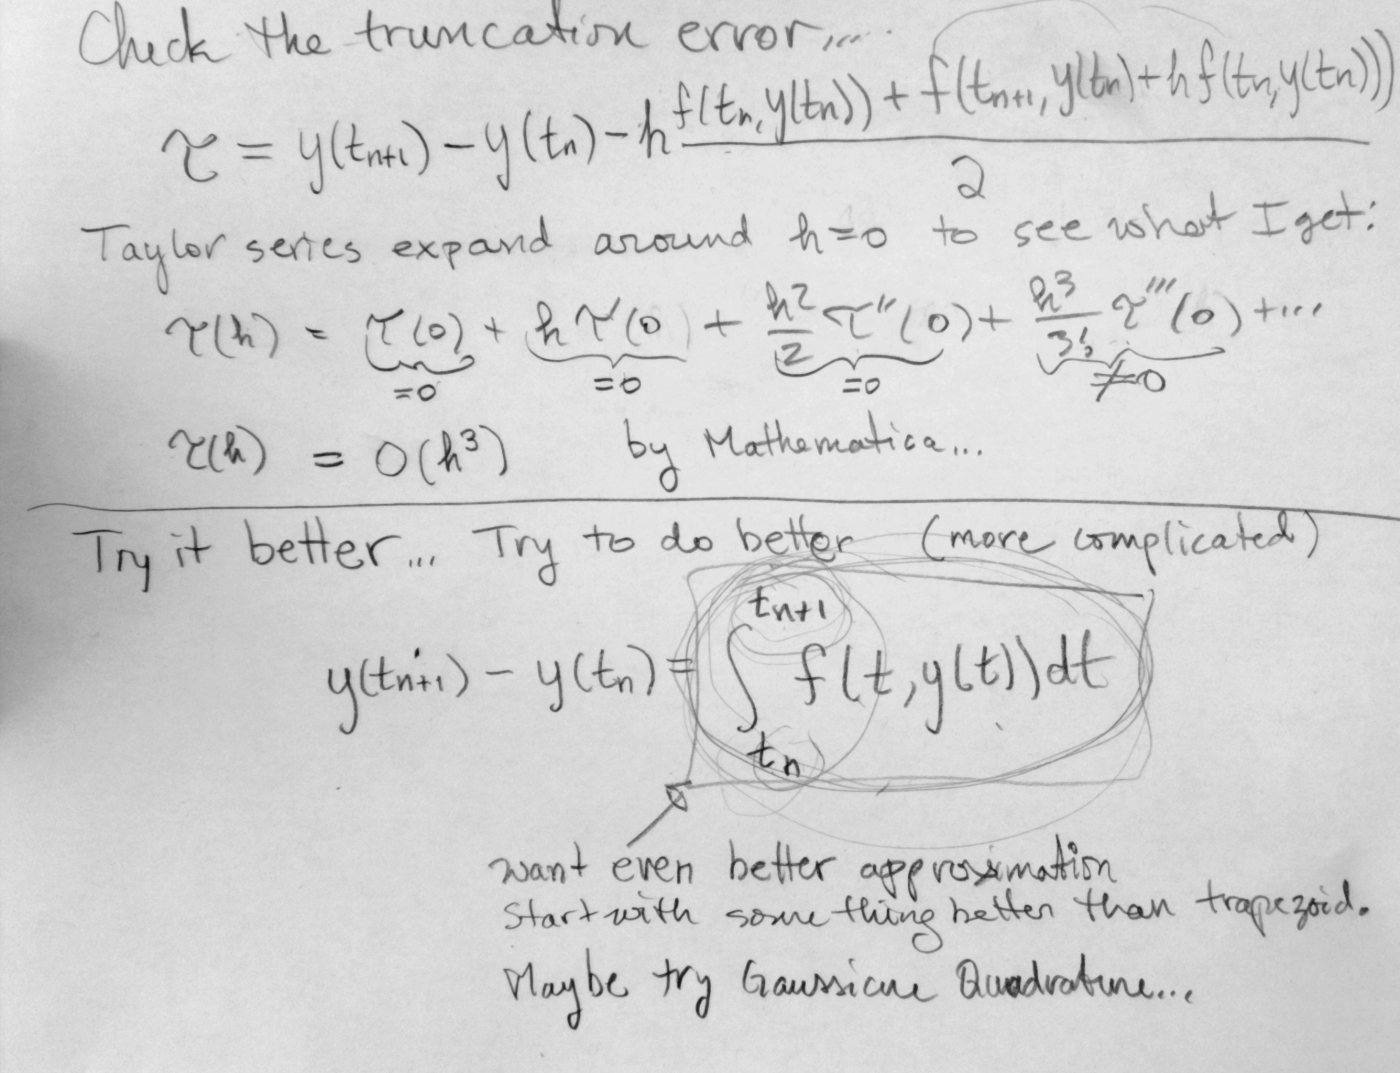 Check the truncation error....
τ = y(tn+1) − y(tn) − h (f(tn, y(tn)) + f(tn+1, y(tn) + h f(tn, y(tn)))) / 2
Taylor series expand around h=0 to see what I get:
τ(h) = τ(0) + h τ'(0) + h²/2 τ''(0) + h³/3! τ'''(0) + ...
=0 =0 =0 ≠0
τ(h) = O(h³) by Mathematica...
Try it better... Try to do better (more complicated)
y(tn+1) − y(tn) = ∫ tn tn+1 f(t, y(t)) dt
want even better approximation
Start with something better than trapezoid.
Maybe try Gaussian Quadrature...